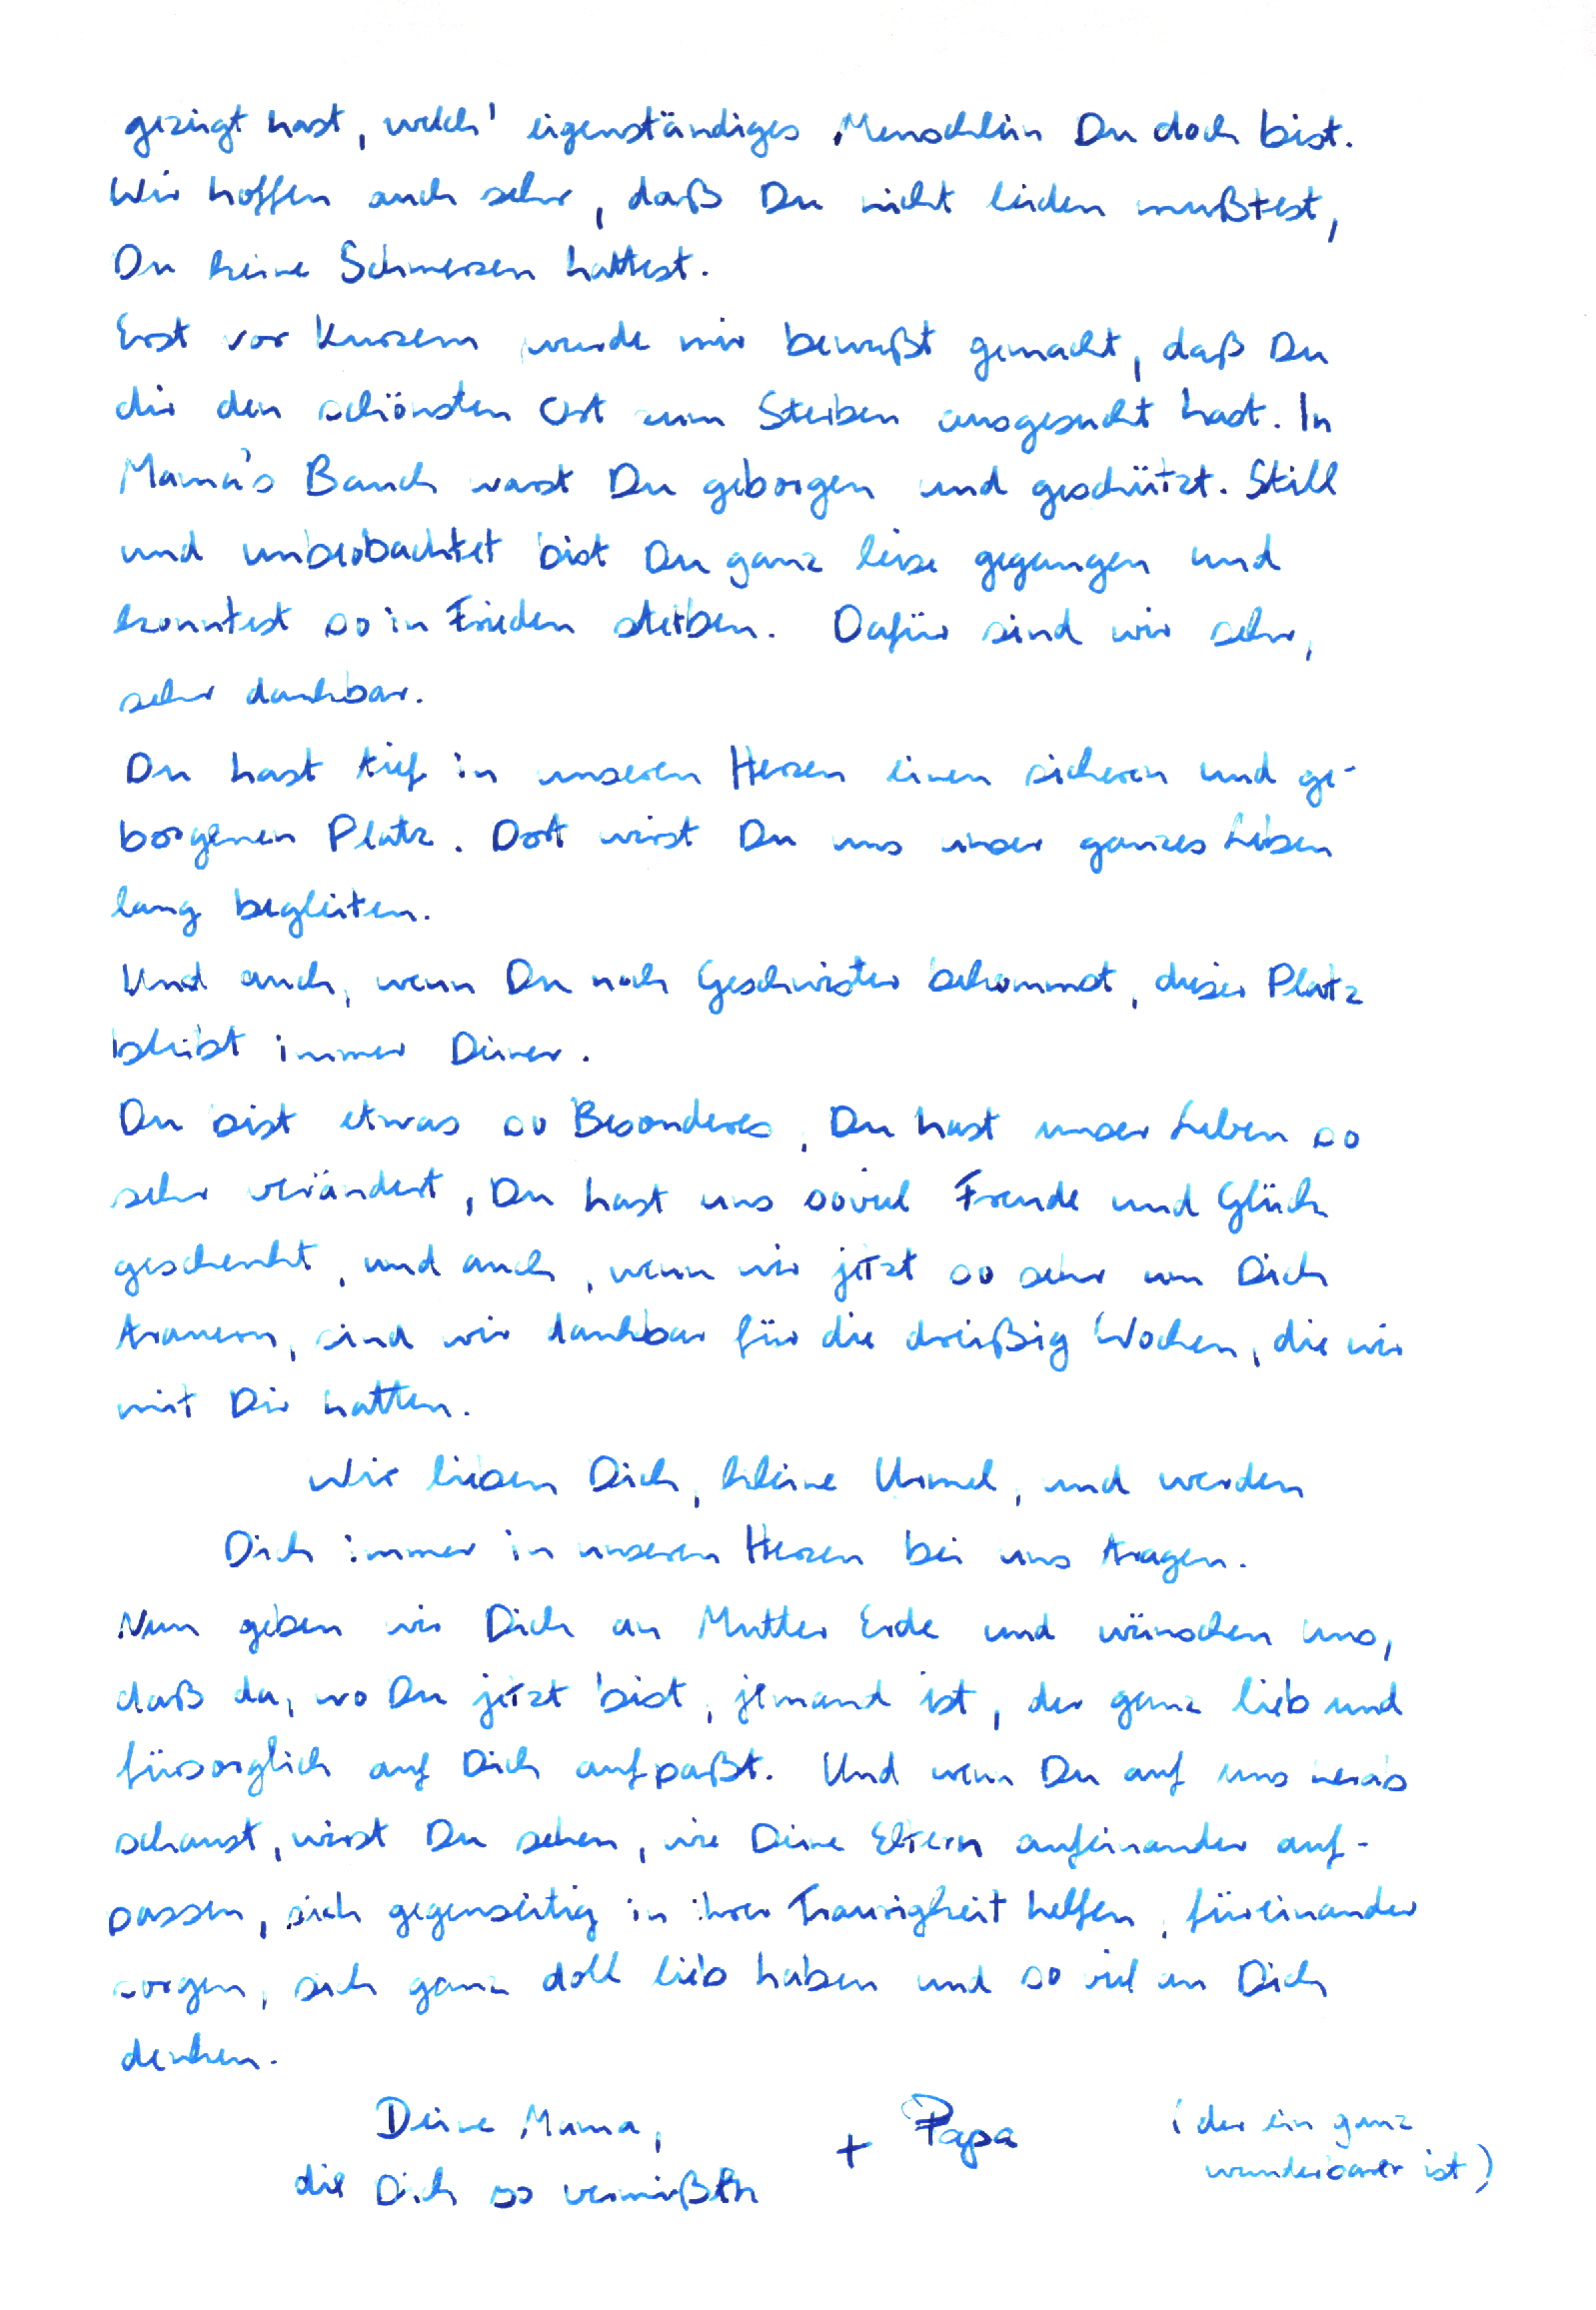 gezeigt hast, welch' eigenständiges Menschlein Du doch bist.
Wir hoffen auch sehr, daß Du nicht leiden mußtest,
Du keine Schmerzen hattest.
Erst vor kurzem wurde mir bewußt gemacht, daß Du
dir den schönsten Ort zum Sterben ausgesucht hast. In
Mama's Bauch warst Du geborgen und geschützt. Still
und unbeobachtet bist Du ganz leise gegangen und
konntest so in Frieden sterben. Dafür sind wir sehr,
sehr dankbar.
Du hast tief in unseren Herzen einen sicheren und ge-
borgenen Platz. Dort wirst Du uns unser ganzes Leben
lang begleiten.
Und auch, wenn Du noch Geschwister bekommst, dieser Platz
bleibt immer Deiner.
Du bist etwas so Besonderes, Du hast unser Leben so
sehr verändert, Du hast uns soviel Freude und Glück
geschenkt, und auch, wenn wir jetzt so sehr um Dich
trauern, sind wir dankbar für die dreißig Wochen, die wir
mit Dir hatten.
Wir lieben Dich, kleine Urmel, und werden
Dich immer in unseren Herzen bei uns tragen.
Nun geben wir Dich an Mutter Erde und wünschen uns,
daß da, wo Du jetzt bist, jemand ist, der ganz lieb und
fürsorglich auf Dich aufpaßt. Und wenn Du auf uns herab
schaust, wirst Du sehen, wie Deine Eltern aufeinander auf-
passen, sich gegenseitig in ihrer Traurigkeit helfen, füreinander
sorgen, sich ganz doll lieb haben und so viel an Dich
denken.
Deine Mama, + Papa (der ein ganz
wunderbarer ist)
die Dich so